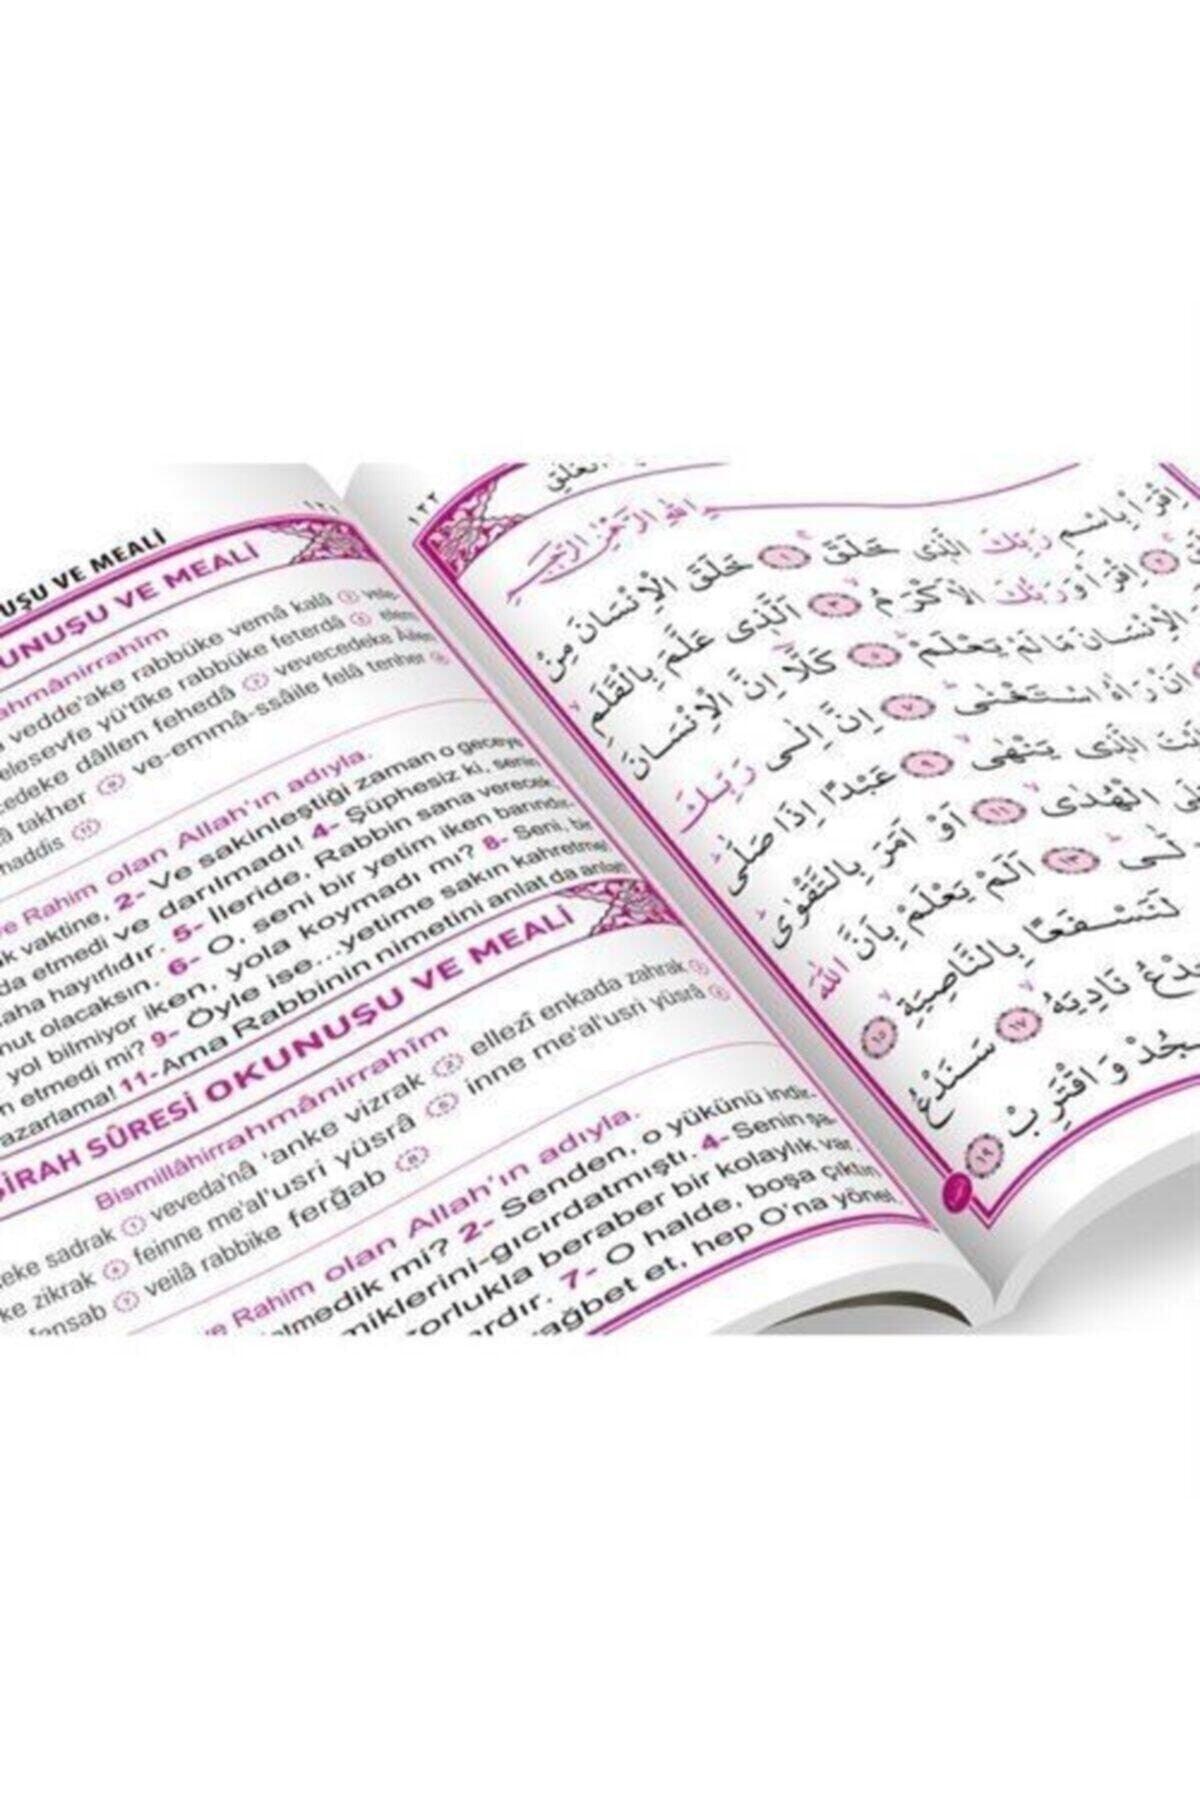 UŞU VE MEALİ
١٢١
UNUŞU VE MEALİ
ahmânirrahîm
vedde'ake rabbüke vemâ kalâ ٣
elesevfe yü'tîke rabbüke feterdâ ٥
cedeke dâllen fehedâ ٧ vevecedeke
â takher ٩ ve-emmâ-ssâile felâ tenher
haddis ١١
ve Rahim olan Allah'ın adıyla.
k vaktine, 2- Ve sakinleştiği zaman o geceye
da etmedi ve darılmadı! 4- Şüphesiz ki, senin
aha hayırlıdır. 5- İleride, Rabbin sana verecek
nut olacaksın. 6- O, seni bir yetim iken barındır
yol bilmiyor iken, yola koymadı mı? 8- Seni, bir
n etmedi mi? 9- Öyle ise...yetime sakın kahretme!
azarlama! 11- Ama Rabbinin nimetini anlat da anlat
ŞİRAH SÛRESİ OKUNUŞU VE MEALİ
Bismillâhirrahmânirrahîm
eke sadrak ١ veveda'nâ 'anke vizrak ٢ ellezî enkada zahrak ٣
ke zikrak ٤ feinne me'al'usri yüsrâ ٥ inne me'al'usri yüsrâ ٦
fensab ٧ veilâ rabbike ferğab ٨
ve Rahim olan Allah'ın adıyla.
tmedik mi? 2- Senden, o yükünü indir
miklerini-gıcırdatmıştı. 4- Senin şa-
zorlukla beraber bir kolaylık var.
ardır. 7- O halde, boşa çıktın
ağbet et, hep O'na yönel.
١٢٢
العلق
اللّٰهِ الرَّحْمٰنِ الرَّحِيمِ
اِقْرَأْ بِاسْمِ رَبِّكَ الَّذِى خَلَقَ ١ خَلَقَ الْاِنْسَانَ مِنْ
٢ اِقْرَأْ وَرَبُّكَ الْاَكْرَمُ ٣ اَلَّذِى عَلَّمَ بِالْقَلَمِ
الْاِنْسَانَ مَا لَمْ يَعْلَمْ ٥ كَلَّا اِنَّ الْاِنْسَانَ
اَنْ رَاٰهُ اسْتَغْنٰى ٧ اِنَّ اِلٰى رَبِّكَ
الَّذِى يَنْهٰى ٩ عَبْدًا اِذَا صَلّٰى
الْهُدٰى ١١ اَوْ اَمَرَ بِالتَّقْوٰى
لّٰى ١٣ اَلَمْ يَعْلَمْ بِاَنَّ اللّٰهَ
لَنَسْفَعًا بِالنَّاصِيَةِ ١٥
نَادِيَهُ ١٧ سَنَدْعُ
وَاقْتَرِبْ ١٩